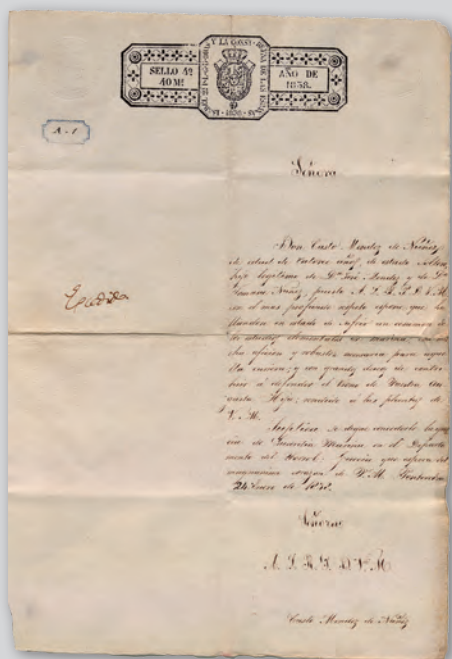 SELLO 4º
40 Ms
AÑO DE
1838.
A-1
Señora
Don Casto Mendez de Nuñez
de edad de catorce años, de estado soltero,
hijo legitimo de Dn José Mendez y de Dª
Nuñez, puesto A. L. R. P. D. V. M.
con el mas profundo respeto espone: que ha
llandose en estado de sufrir un examen de
estudios elementales de marina,
cha aficion y robustez necesaria para aque
lla carrera; y con grandes deseos de contri
buir á defender el trono de Vuestra Au
gusta Hija; rendido á los pies de
V. M.
Suplica se digne concederle la gra
cia de Guardia Marina en el Departa
mento del Ferrol. Gracia que espera del
magnanimo corazon de V. M.
24 Enero de 1838.
Señora
A. L. R. P. D. V. M
Casto Mendez de Nuñez